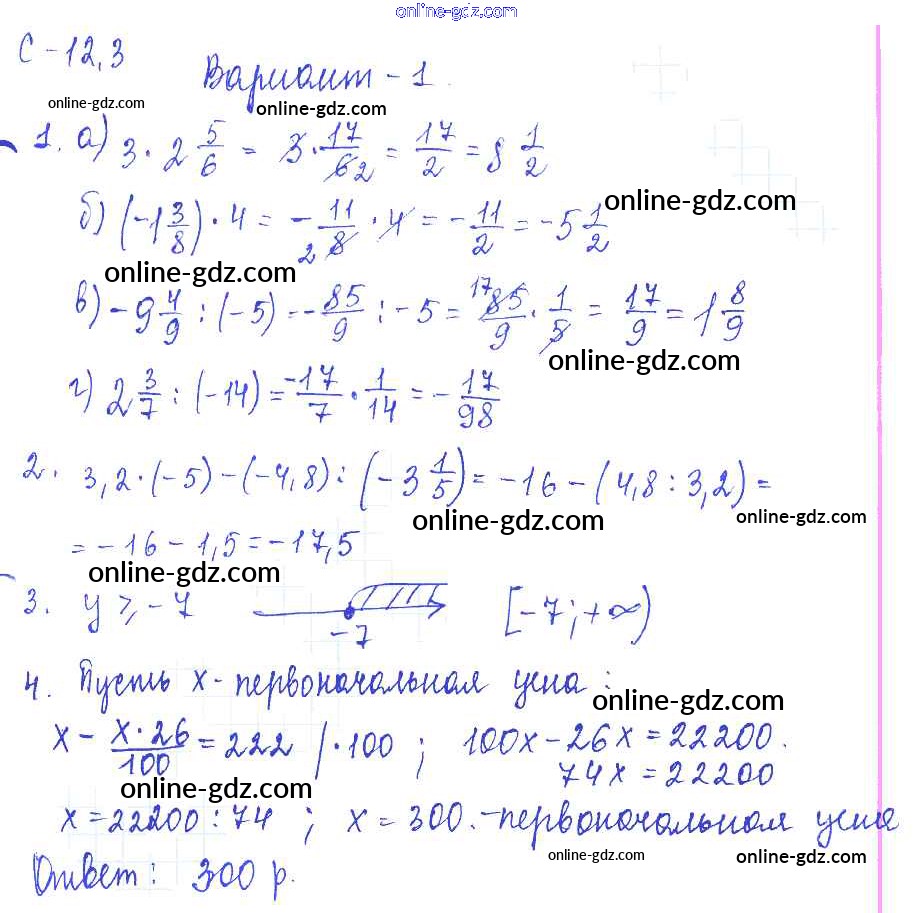 online-gdz.com
С-12,3
Вариант-1.
online-gdz.com online-gdz.com
1. а) 3 · 2 5/6 = 3 · 17/6 2 = 17/2 = 8 1/2
online-gdz.com
б) (-1 3/8) · 4 = - 11/8 2 · 4 = - 11/2 = -5 1/2
online-gdz.com
в) -9 4/9 : (-5) = - 85/9 : -5 = 17 85/9 · 1/5 = 17/9 = 1 8/9
online-gdz.com
г) 2 3/7 : (-14) = -17/7 · 1/14 = - 17/98
2. 3,2·(-5)-(-4,8):(-3 1/5) = -16-(4,8:3,2) =
online-gdz.com online-gdz.com
= -16-1,5 = -17,5
online-gdz.com
3. y ⩾ -7 -7 [-7;+∞)
4. Пусть х-первоначальная цена:
online-gdz.com
х - х·26/100 = 222 /·100 ; 100х-26х=22200.
74х=22200
online-gdz.com
х=22200:74 ; х=300.-первоначальная цена
Ответ: 300 р.
online-gdz.com online-gdz.com